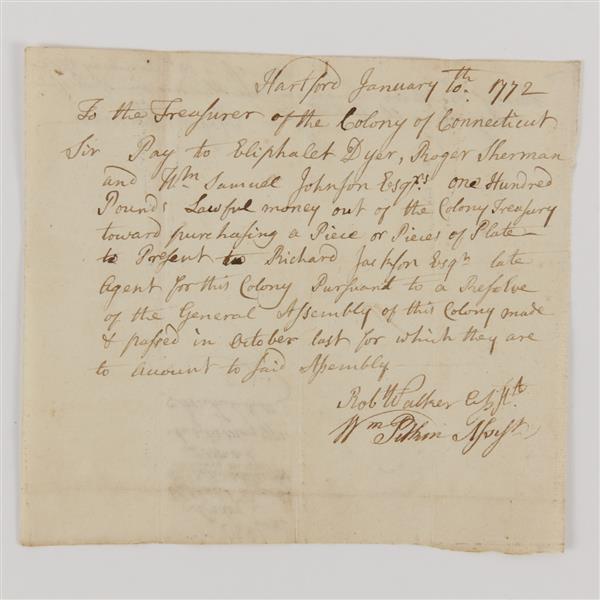 Hartford January 10th. 1772
To the Treasurer of the Colony of Connecticut
Sir Pay to Eliphalet Dyer, Roger Sherman
and Wm Samuel Johnson Esqrs one Hundred
Pounds Lawful money out of the Colony Treasury
toward purchasing a Piece or Pieces of Plate
to Present to Richard Jackson Esqr late
Agent for this Colony Pursuant to a Resolve
of the General Assembly of this Colony made
& passed in October last for which they are
to Account to said Assembly
Robt Walker
Wm Pitkin Assist